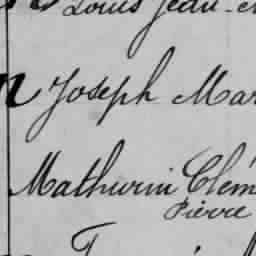 Louis Jean
Joseph Mar
Mathurin Clém
Pierre